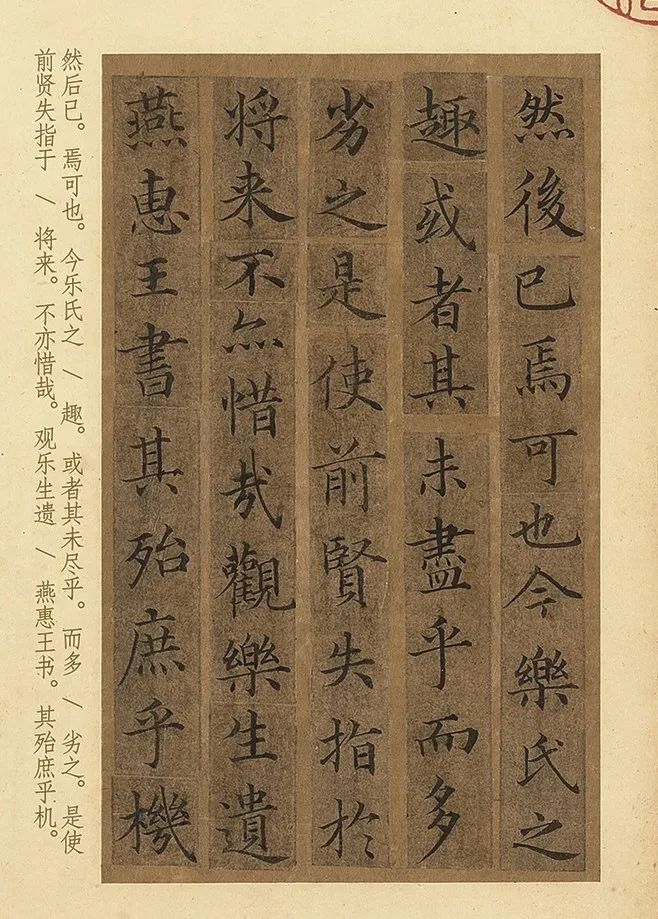 然後已焉可也今樂氏之
趣或者其未盡乎而多
劣之是使前賢失指於
将来不亦惜哉觀樂生遺
燕惠王書其殆庶乎機
然后已。焉可也。今乐氏之 / 趣。或者其未尽乎。而多 / 劣之。是使
前贤失指于 / 将来。不亦惜哉。观乐生遗 / 燕惠王书。其殆庶乎机。